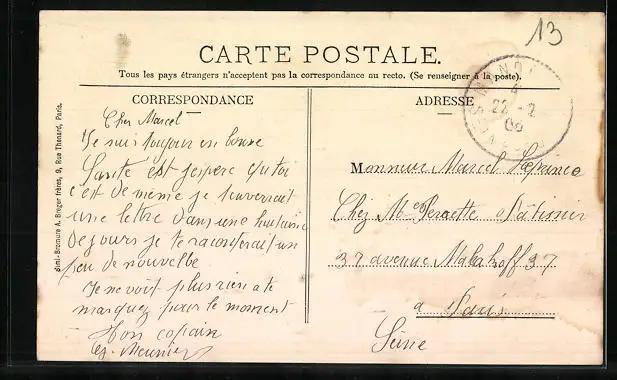 13
CARTE POSTALE.
Tous les pays étrangers n'acceptent pas la correspondance au recto. (Se renseigner à la poste).
CORRESPONDANCE
ADRESSE
Simi-Bromure A. Breger frères, 9, Rue Thénard, Paris.
Cher Marcel
Je suis toujour en bonne
Santé est jespere qu toi
c'est de même je tenverrait
une lettre dans une huitaine
de jours je te raconterait un
peu de nouvelle
Je ne voit plus rien a te
marquez pour le moment
Ton copain
Meunier
22 - 2
06
Monsieur Marcel Lefrance
Chez Mme Perrette Patissier
37 avenue Malakoff 37
a Paris
Seine